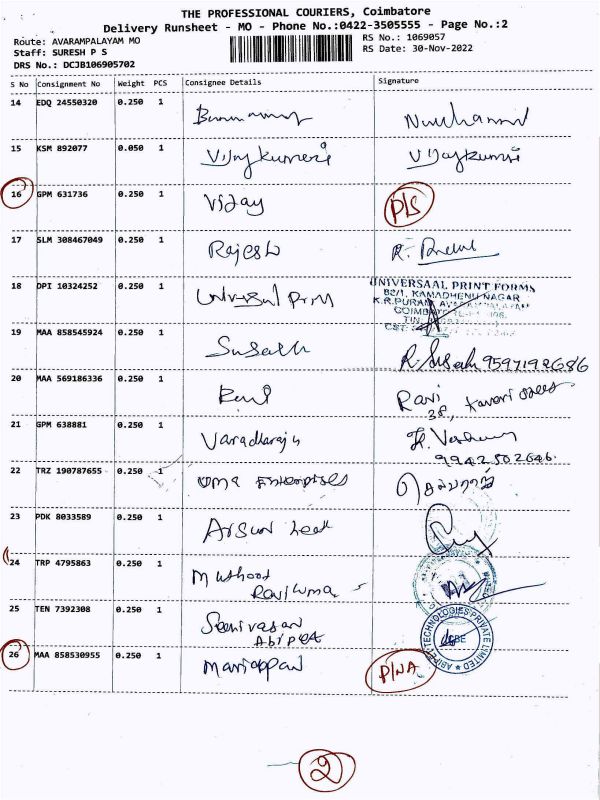 THE PROFESSIONAL COURIERS, Coimbatore
Delivery Runsheet - MO - Phone No.:0422-3505555 - Page No.:2
Route: AVARAMPALAYAM MO
RS No.: 1069057
Staff: SURESH P S
RS Date: 30-Nov-2022
DRS No.: DCJB106905702
S No Consignment No Weight PCS Consignee Details Signature
14 EDQ 24550320 0.250 1
15 KSM 892077 0.050 1 Vijaykumeri Vijaykumri
16 GPM 631736 0.250 1 Vijay P/S
17 SLM 308467049 0.250 1 Rajesh R.
18 DPI 10324252 0.250 1 Universal Prin
UNIVERSAAL PRINT FORMS
82/1, KAMADHENU NAGAR
K.R.PURAM, AVARAMPALAYAM
19 MAA 858545924 0.250 1 Suseth 9597192686
20 MAA 569186336 0.250 1 Ravi Ravi
38, Kaveri
21 GPM 638881 0.250 1 Varadharaju
9942502646.
22 TRZ 190787655 0.250 1 Uma Enterprises
23 PDK 8033589 0.250 1 Arsun
24 TRP 4795863 0.250 1 Muthoot
25 TEN 7392308 0.250 1 Seenivasan
Abipet
ABIPET TECHNOLOGIES PRIVATE LIMITED
26 MAA 858530955 0.250 1 Mariappan P/NA
2